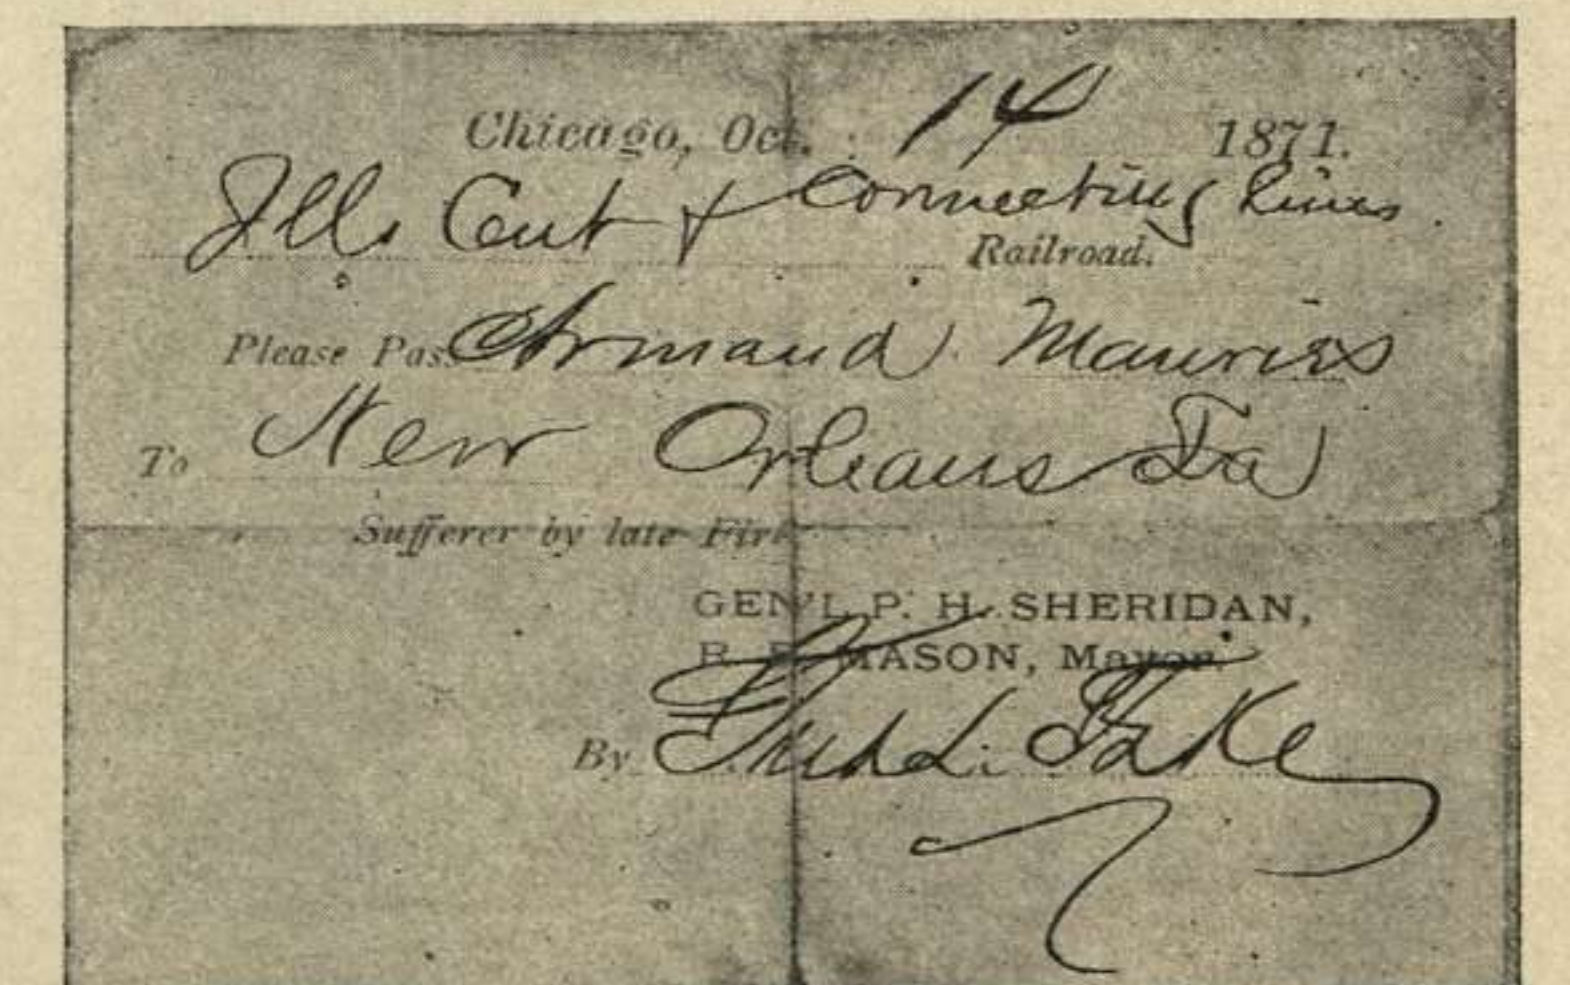 Chicago, Oct. 14 1871.
Ills Cent & Connecting Lines
Railroad.
Please Pass Armand
To New Orleans La
Sufferer by late Fire
GEN'L P. H. SHERIDAN,
R. B. MASON, Mayor.
By L.